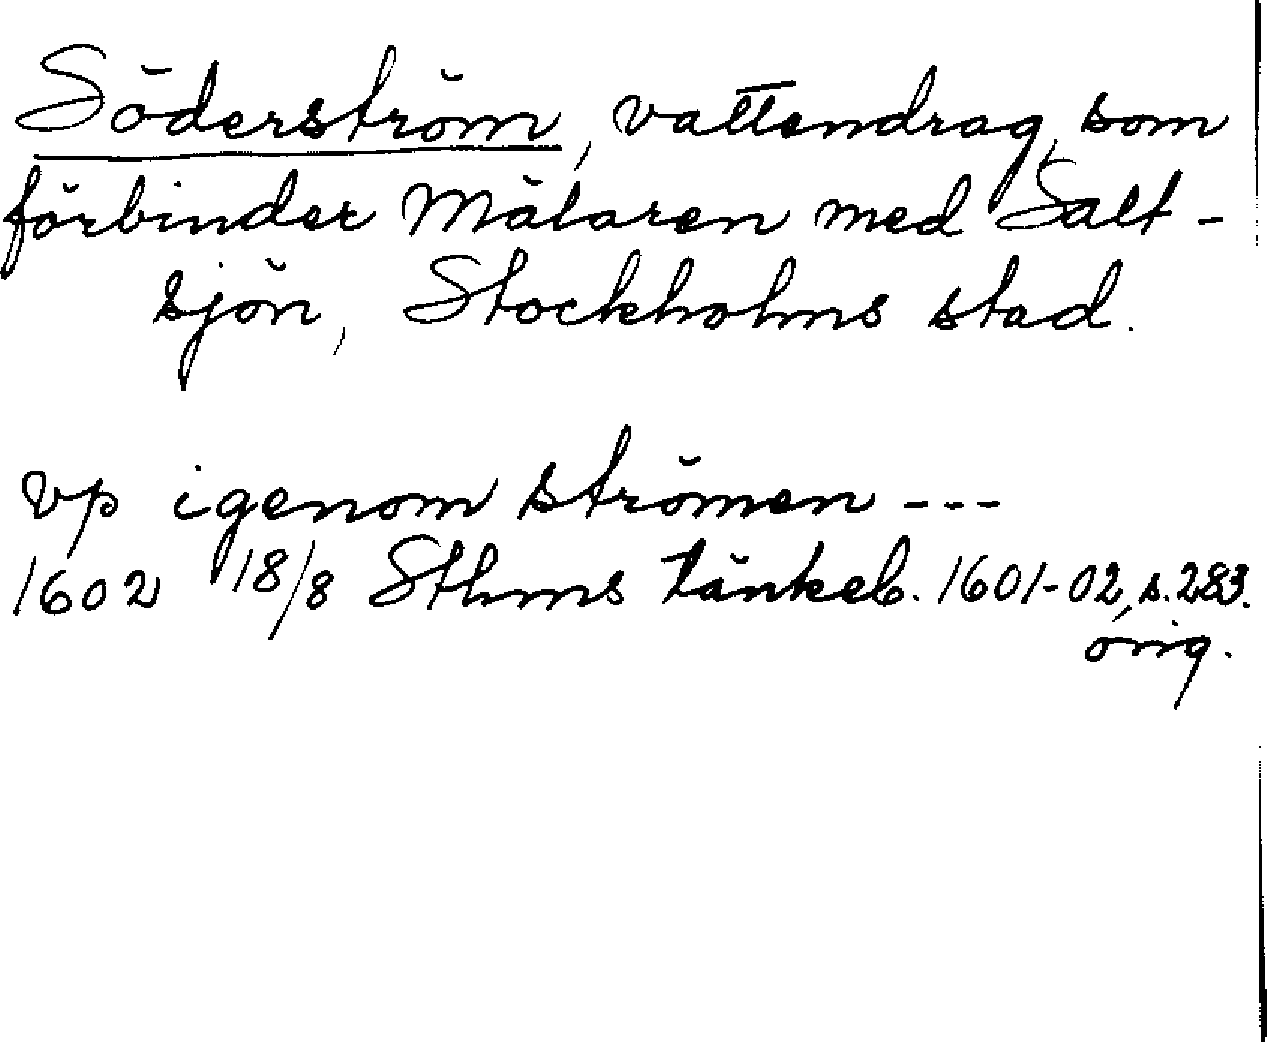 Söderström, vattendrag, som
förbinder Mälaren med Salt-
sjön, Stockholms stad.
vp igenom strömen ---
1602 18/8 Sthms tänkeb. 1601-02, s. 283.
orig.